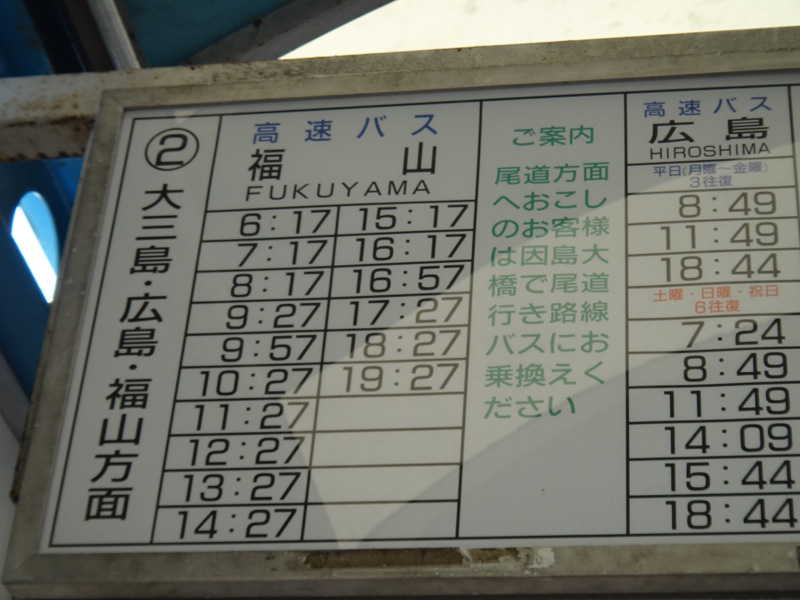 ②大三島・広島・福山方面
高速バス
福山
FUKUYAMA
6:17 15:17
7:17 16:17
8:17 16:57
9:27 17:27
9:57 18:27
10:27 19:27
11:27
12:27
13:27
14:27
ご案内
尾道方面
へおこし
のお客様
は因島大
橋で尾道
行き路線
バスにお
乗換えく
ださい
高速バス
広島
HIROSHIMA
平日(月曜~金曜)
3往復
8:49
11:49
18:44
土曜・日曜・祝日
6往復
7:24
8:49
11:49
14:09
15:44
18:44